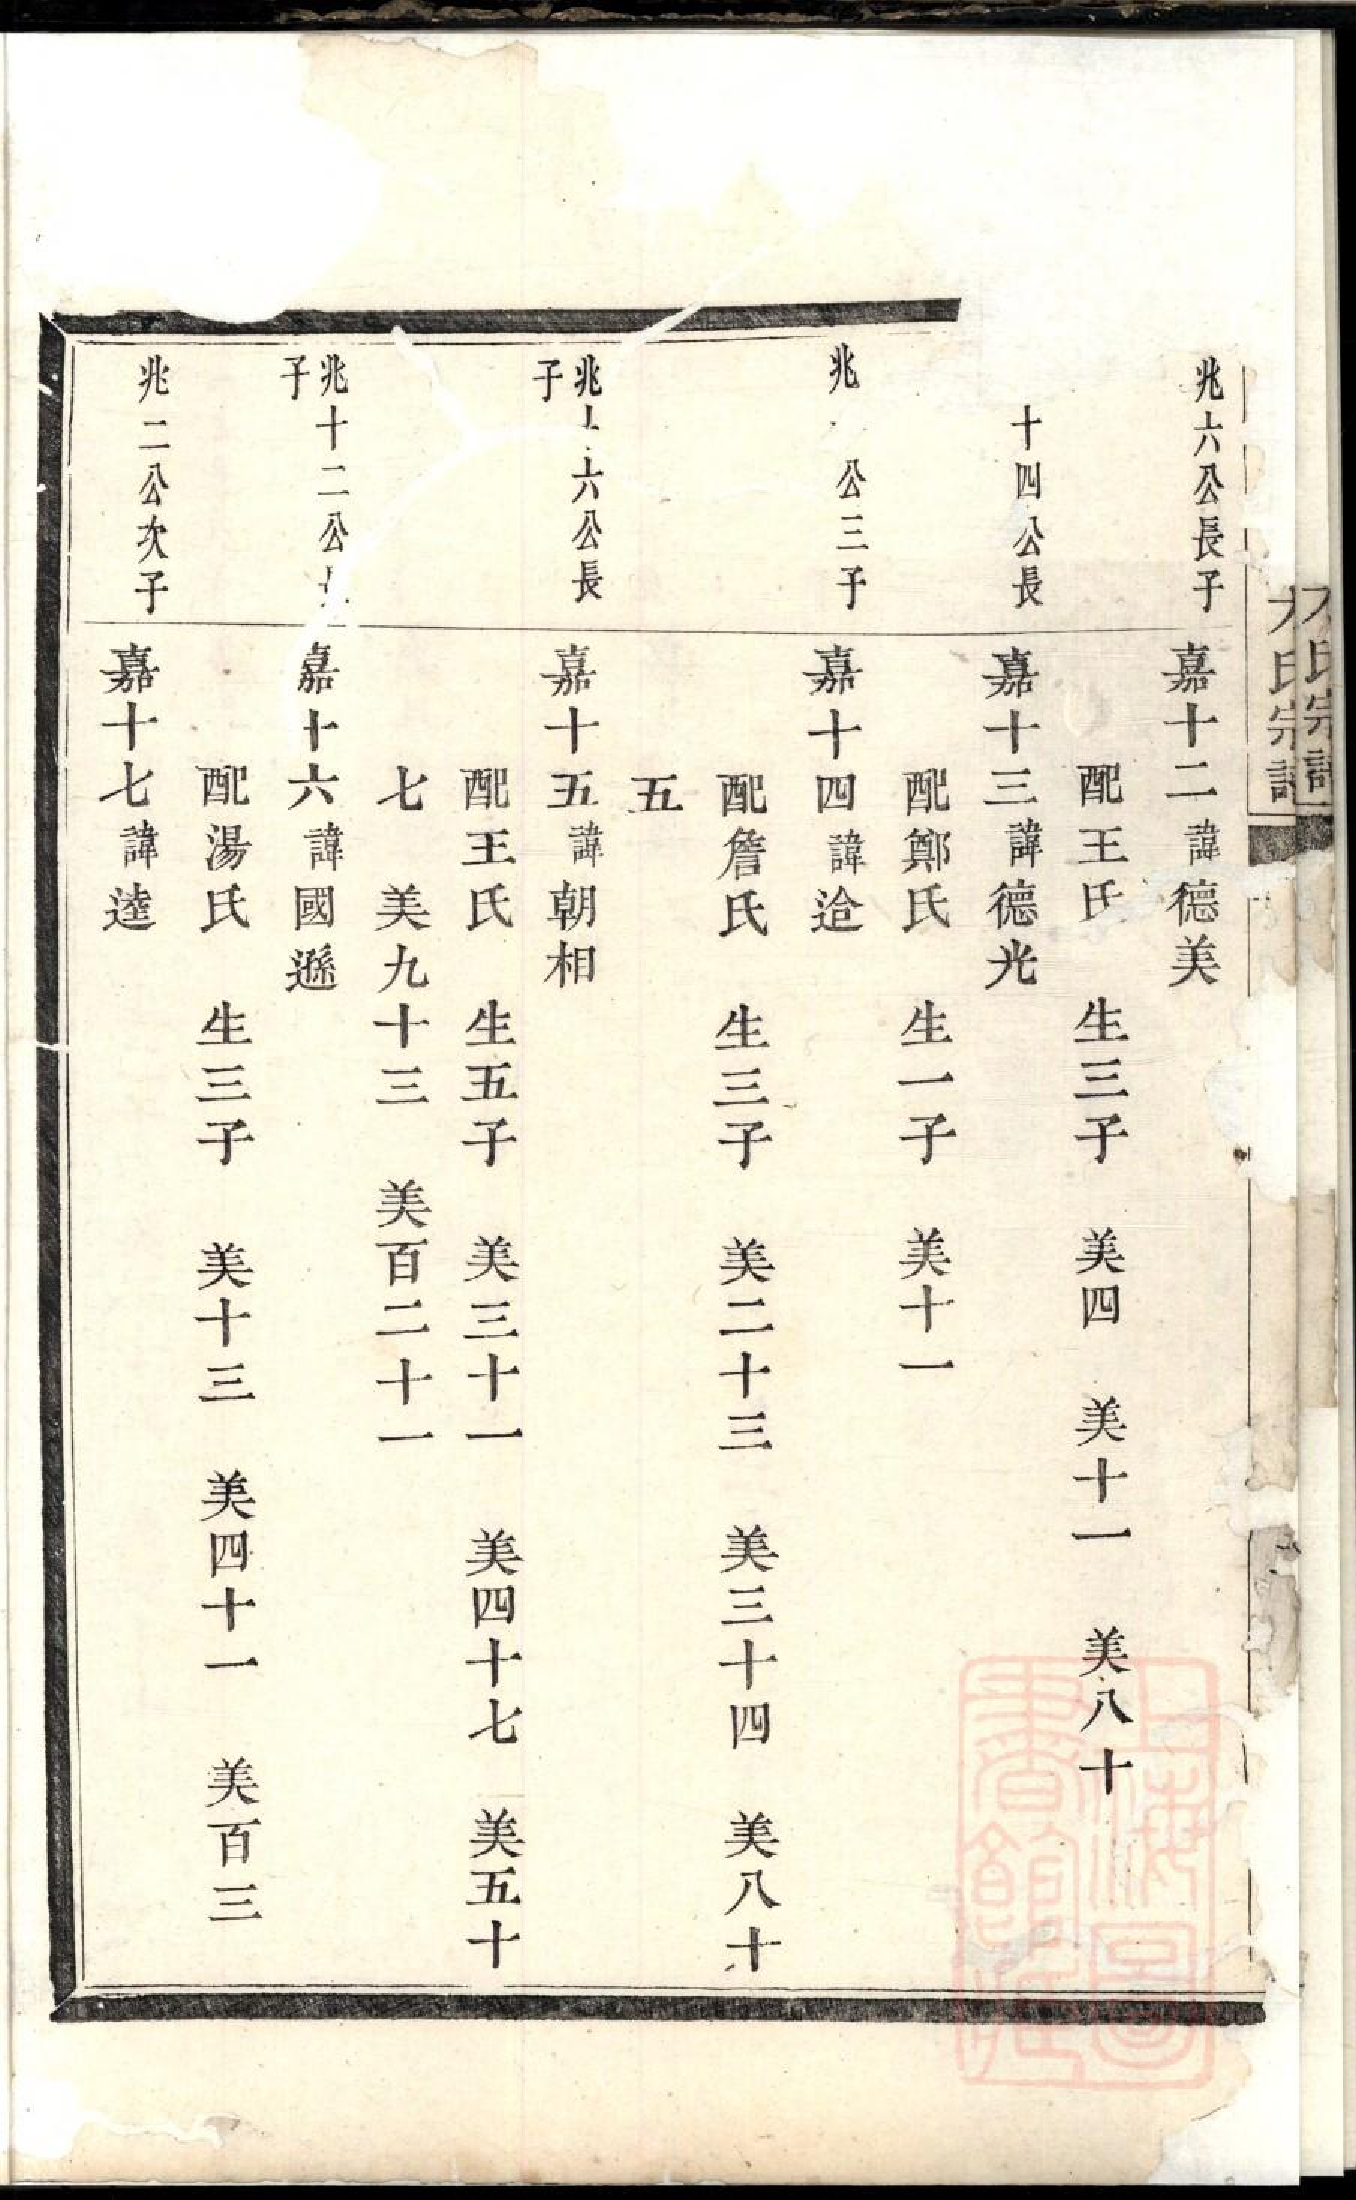 兆六公長子
嘉十二諱德美
配王氏　生三子　美四　美十一　美八十
十四公長
嘉十三諱德光
配鄭氏　生一子　美十一
兆
公三子
嘉十四諱迨
配詹氏　生三子　美二十三　美三十四　美八十
五
兆十六公長
子
嘉十五諱朝相
配王氏　生五子　美三十一　美四十七　美五十
七　美九十三　美百二十一
兆十二公
子
嘉十六諱國遜
配湯氏　生三子　美十三　美四十一　美百三
兆二公次子
嘉十七諱逵
氏宗譜
上海圖
書館藏